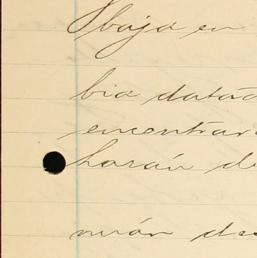 baja en
bia datad
encontrar
harán de
nirán des